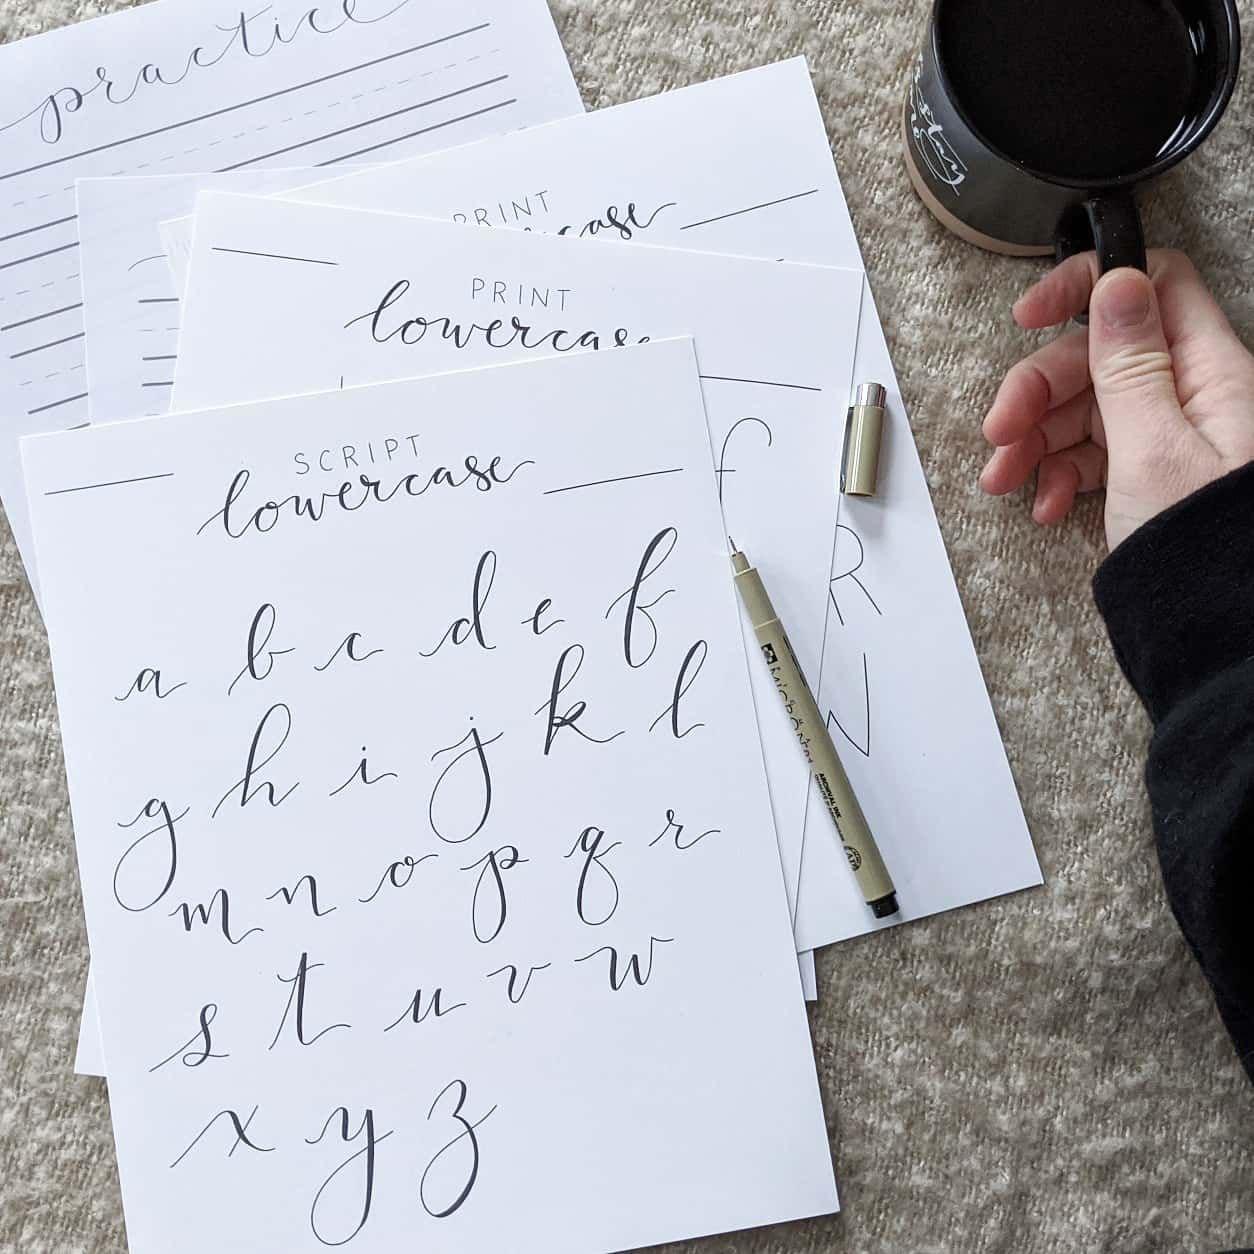 practice
PRINT
case
PRINT
lowercase
SCRIPT
lowercase
a b c d e f
g h i j k l
m n o p q r
s t u v w
x y z
f
R
W
stay
MICRON
ARCHIVAL INK